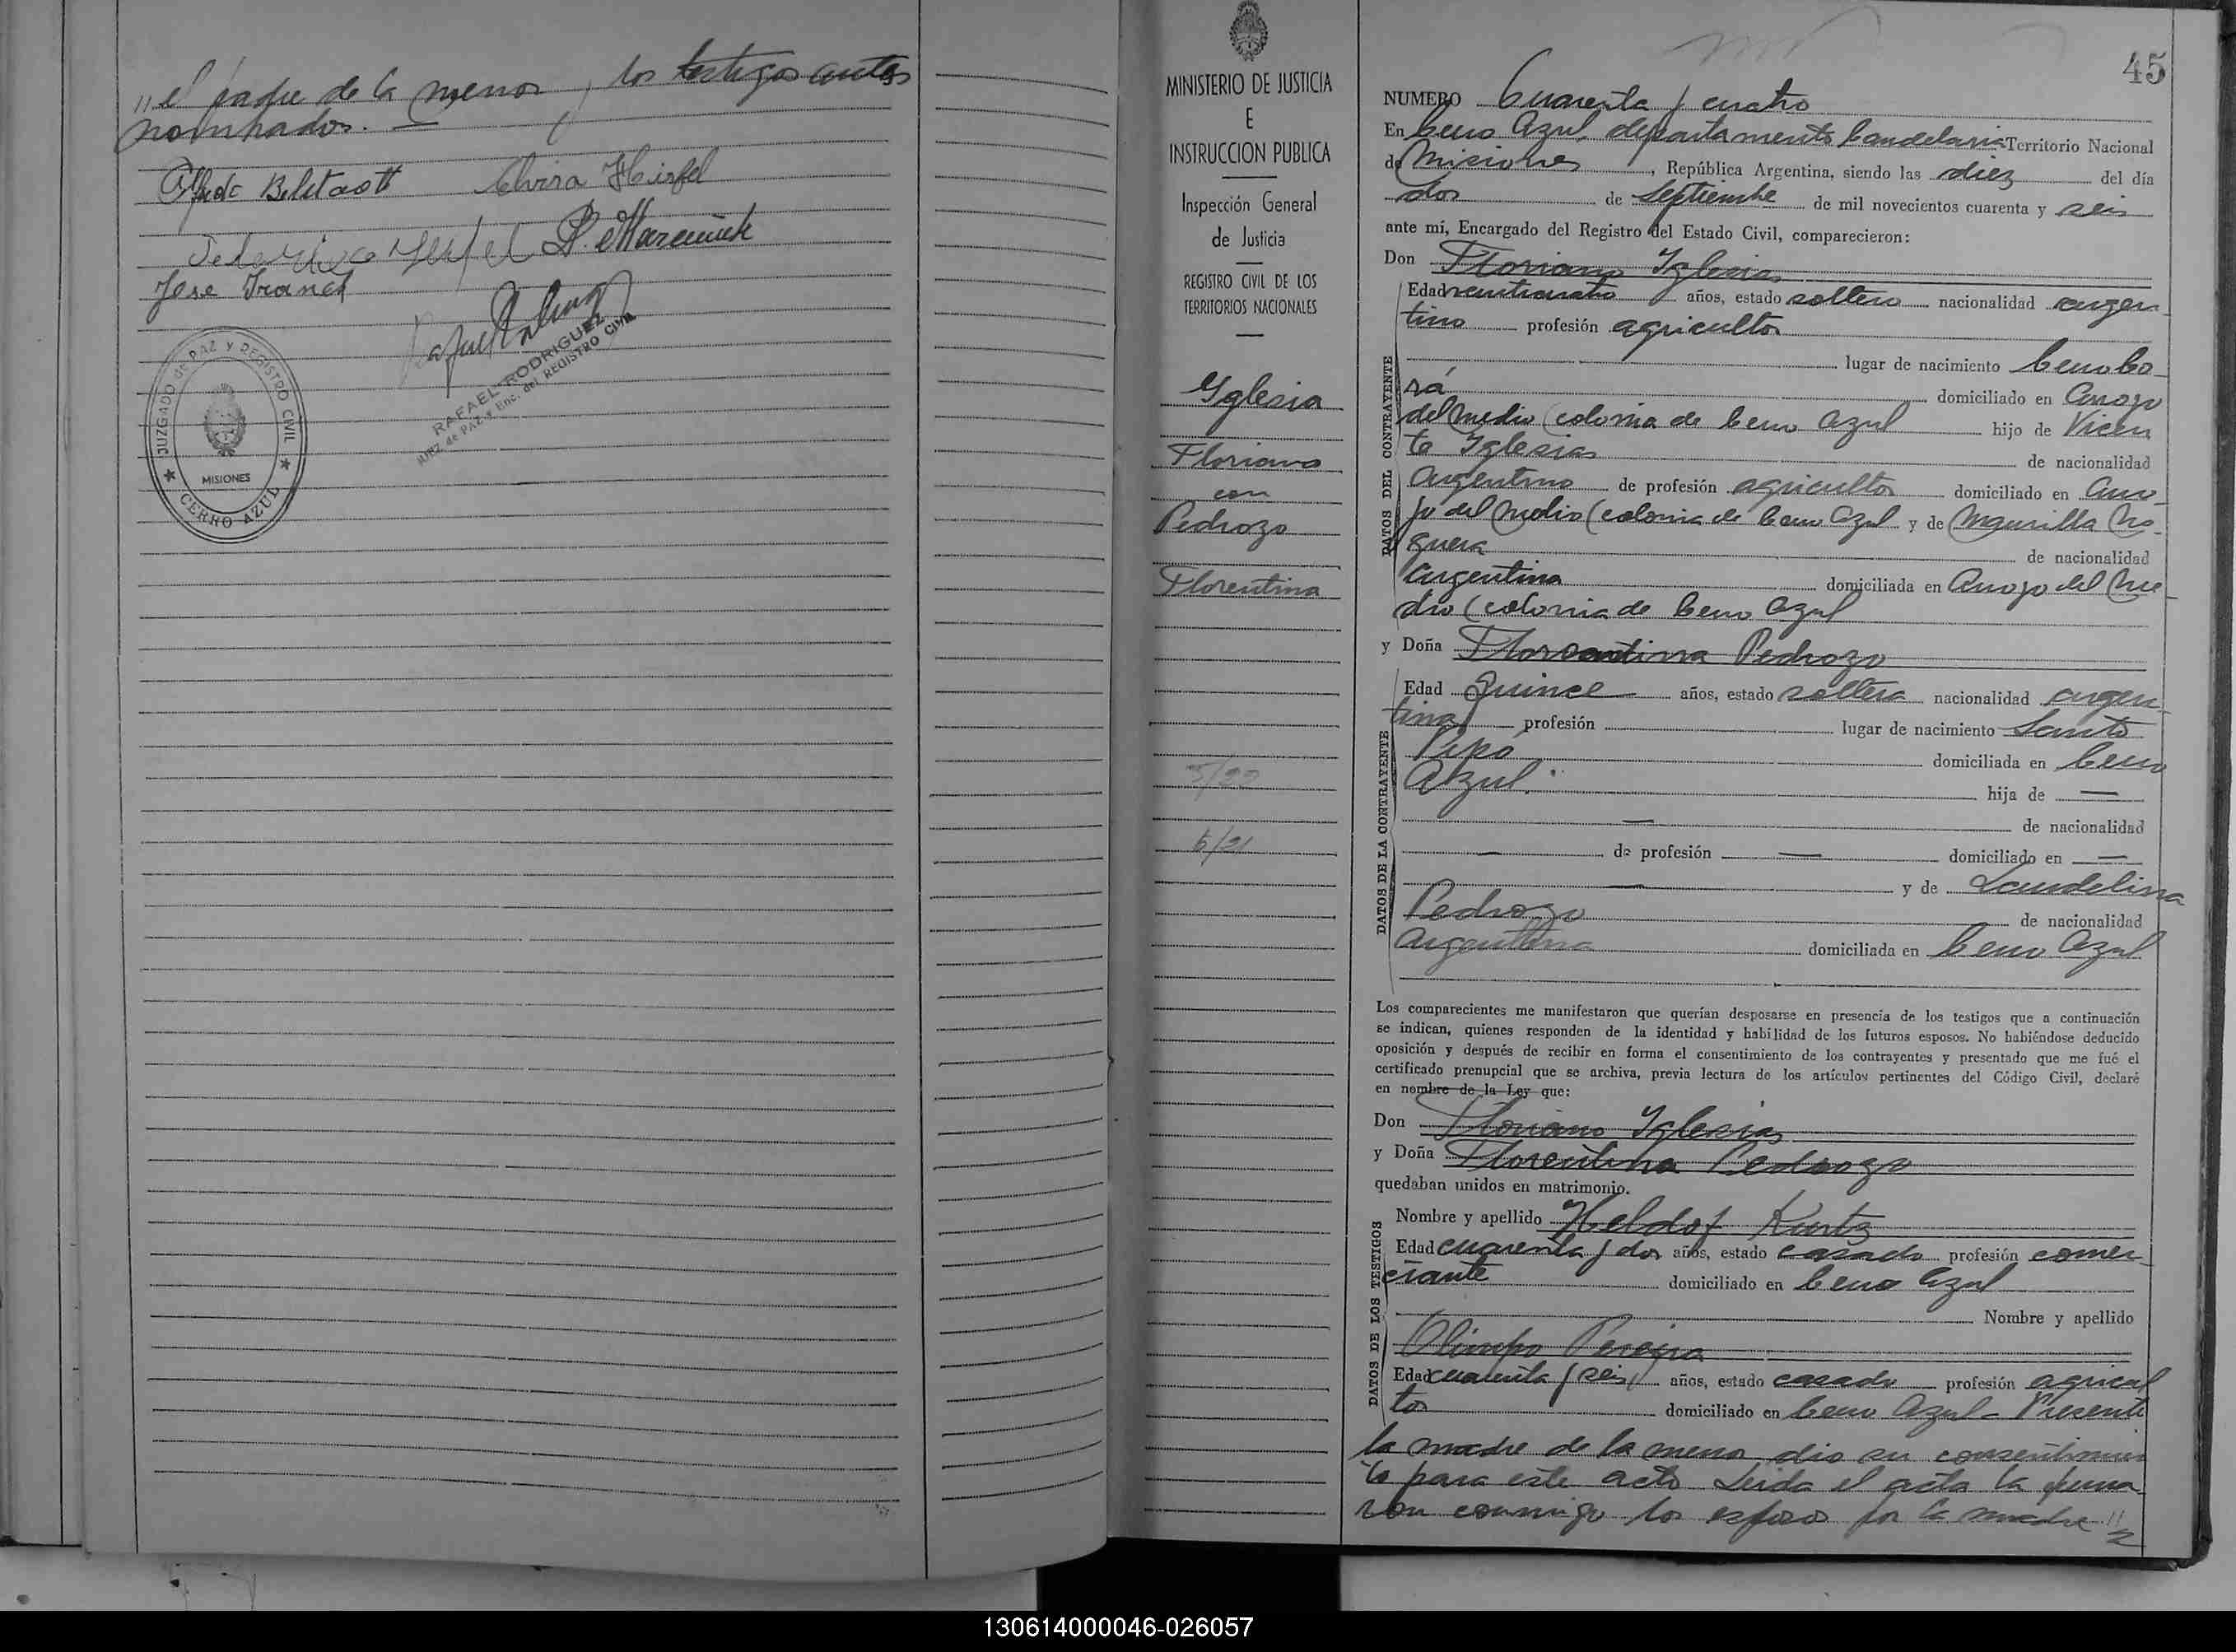 "el padre de la menor y los testigos antes
nombrados. —
Elvira Hirfel
Jose Franch
RAFAEL RODRIGUEZ
JUEZ de PAZ y Enc. del REGISTRO CIVIL
JUZGADO de PAZ y REGISTRO CIVIL
MISIONES
★ CERRO AZUL ★
MINISTERIO DE JUSTICIA
E
INSTRUCCION PUBLICA
Inspección General
de Justicia
REGISTRO CIVIL DE LOS
TERRITORIOS NACIONALES
Yglesia
Floriano
con
Pedrozo
Florentina
45
NUMERO Cuarenta y cuatro
En Cerro Azul, departamento Candelaria Territorio Nacional
de Misiones, República Argentina, siendo las diez del día
dos de Septiembre de mil novecientos cuarenta y seis
ante mí, Encargado del Registro del Estado Civil, comparecieron:
Don Floriano Yglesias
DATOS DEL CONTRAYENTE
Edad veinticuatro años, estado soltero nacionalidad argen
tino profesión agricultor
lugar de nacimiento Cerro Co
rá domiciliado en Arroyo
del Medio (colonia de Cerro Azul hijo de Vicen
te Yglesias de nacionalidad
Argentino de profesión agricultor domiciliado en Arro
yo del Medio (colonia de Cerro Azul y de No
guera de nacionalidad
argentina domiciliada en Arroyo del Me
dio (colonia de Cerro Azul
y Doña Florentina Pedrozo
DATOS DE LA CONTRAYENTE
Edad Quince años, estado soltera nacionalidad argen
tina profesión lugar de nacimiento Santo
Pipó domiciliada en Cerro
Azul. hija de —
— de nacionalidad
— de profesión — domiciliado en —
— y de Laudelina
Pedrozo de nacionalidad
argentina domiciliada en Cerro Azul
Los comparecientes me manifestaron que querían desposarse en presencia de los testigos que a continuación
se indican, quienes responden de la identidad y habilidad de los futuros esposos. No habiéndose deducido
oposición y después de recibir en forma el consentimiento de los contrayentes y presentado que me fué el
certificado prenupcial que se archiva, previa lectura de los artículos pertinentes del Código Civil, declaré
en nombre de la Ley que:
Don Floriano Yglesias
y Doña Florentina Pedrozo
quedaban unidos en matrimonio.
DATOS DE LOS TESTIGOS
Nombre y apellido Heldof Kurtz
Edad cuarenta y dos años, estado casado profesión comer
ciante domiciliado en Cerro Azul
Nombre y apellido
Olimpo Pereyra
Edad cuarenta y seis años, estado casado profesión agricul
tor domiciliado en Cerro Azul - Presente
la madre de la menor dio su consentimien
to para este acto Leida el acta la firma
ron conmigo los esposos por la madre "
130614000046-026057